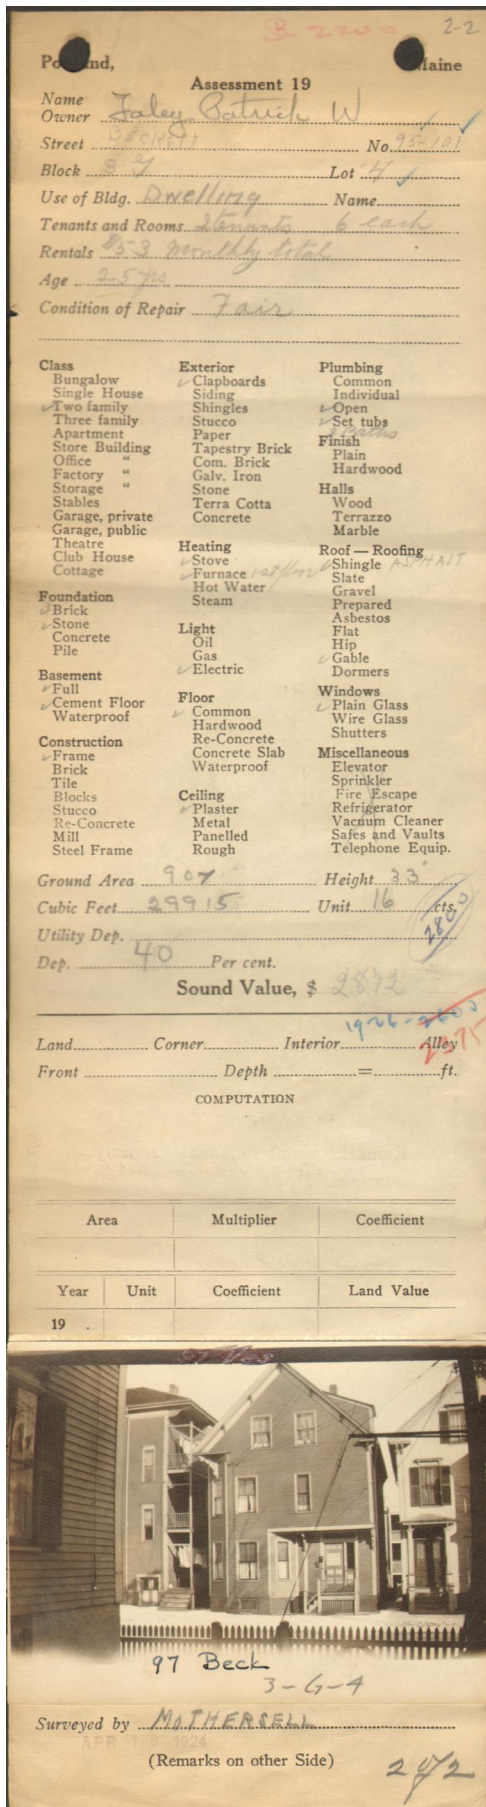 B-2200 2-2
Portland, Maine
Assessment 19
Name
Owner Foley Patrick W
Street BECKETT No. 95-101
Block 3 G Lot 4
Use of Bldg. Dwelling Name
Tenants and Rooms 2 tenants 6 each
Rentals $53 Monthly total
Age 25 yrs
Condition of Repair Fair
Class
Bungalow
Single House
✓ Two family
Three family
Apartment
Store Building
Office "
Factory "
Storage "
Stables
Garage, private
Garage, public
Theatre
Club House
Cottage
Foundation
✓ Brick
✓ Stone
Concrete
Pile
Basement
✓ Full
✓ Cement Floor
Waterproof
Construction
✓ Frame
Brick
Tile
Blocks
Stucco
Re-Concrete
Mill
Steel Frame
Exterior
✓ Clapboards
Siding
Shingles
Stucco
Paper
Tapestry Brick
Com. Brick
Galv. Iron
Stone
Terra Cotta
Concrete
Heating
✓ Stove
✓ Furnace 1st floor
Hot Water
Steam
Light
Oil
Gas
✓ Electric
Floor
✓ Common
Hardwood
Re-Concrete
Concrete Slab
Waterproof
Ceiling
✓ Plaster
Metal
Panelled
Rough
Plumbing
Common
Individual
✓ Open
✓ Set tubs
2 Baths
Finish
Plain
Hardwood
Halls
Wood
Terrazzo
Marble
Roof — Roofing
✓ Shingle ASPHALT
Slate
Gravel
Prepared
Asbestos
Flat
Hip
✓ Gable
Dormers
Windows
✓ Plain Glass
Wire Glass
Shutters
Miscellaneous
Elevator
Sprinkler
Fire Escape
Refrigerator
Vacuum Cleaner
Safes and Vaults
Telephone Equip.
Ground Area 907 Height 33'
Cubic Feet 29915 Unit 16 cts.
Utility Dep. 2800
Dep. 40 Per cent.
Sound Value, $ 2872
1926-2600
Land Corner Interior Alley 2375
Front Depth = ft.
COMPUTATION
Area Multiplier Coefficient
Year Unit Coefficient Land Value
19 .
97 Beck
3-G-4
Surveyed by MOTHERSELL
APR 18 1924
(Remarks on other Side)